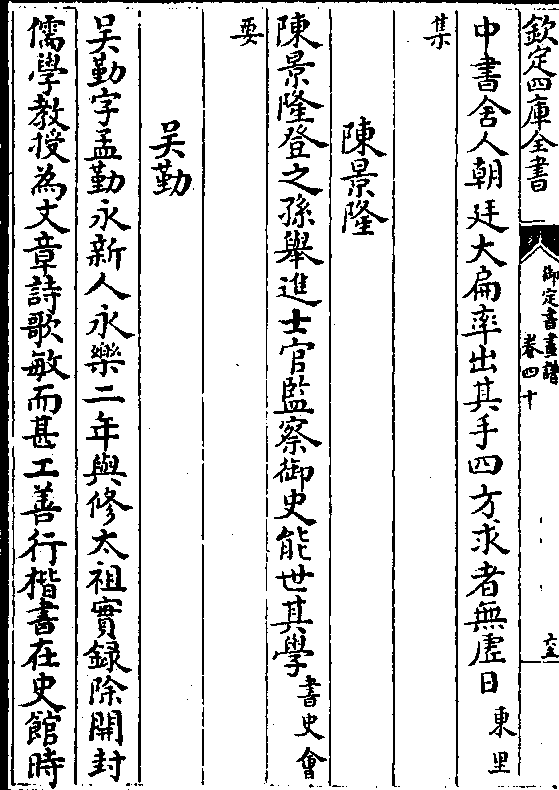 欽定四庫全書
御定書畫譜
卷四十
六五
中書舍人朝廷大扁率出其手四方求者無虛日東里
集
陳景隆
陳景隆登之孫舉進士官監察御史能世其學書史會
要
吴勤
吴勤字孟勤永新人永樂二年與修太祖實録除開封
儒學教授為文章詩歌敏而甚工善行楷書在史館時